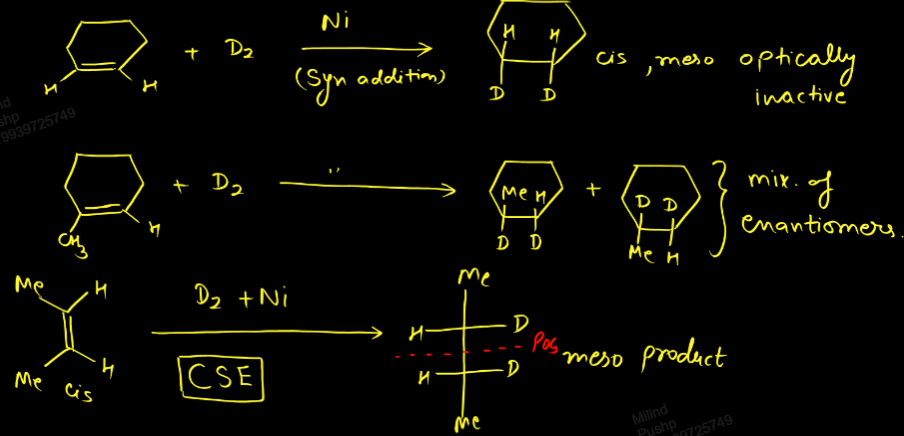 H H + D2 Ni (Syn addition) H H D D cis, meso optically
inactive
CH3 H + D2 " Me H D D + D D Me H } mix. of
enantiomers.
Me H Me H cis D2 + Ni CSE Me H D POS H D Me meso product
Milind
Pushp
9939725749